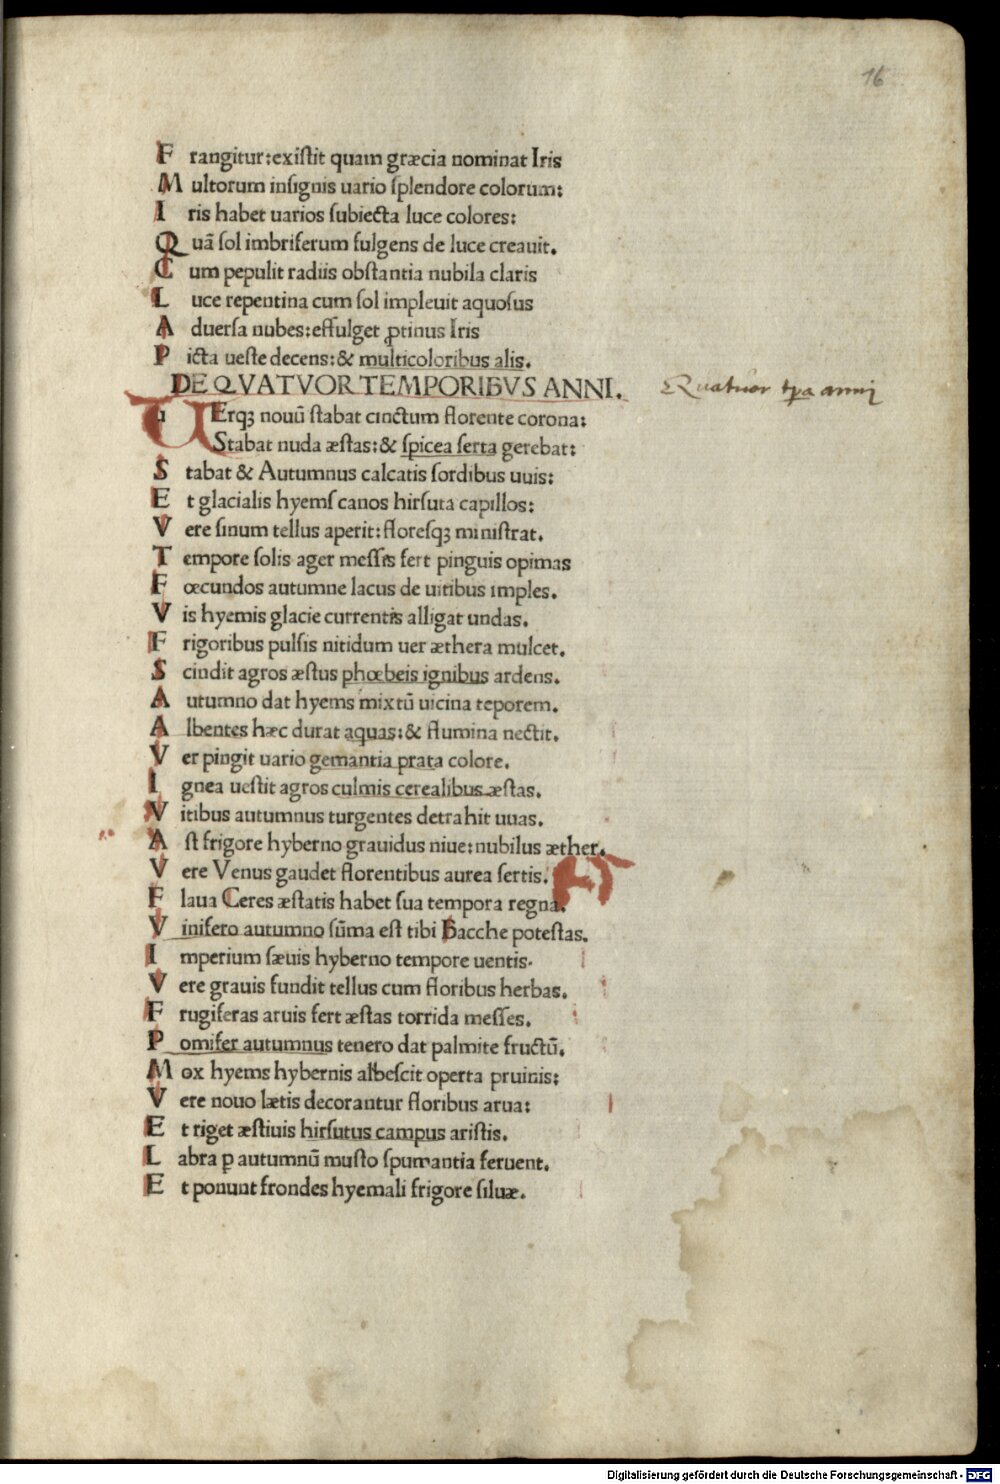 16
F rangitur:existit quam græcia nominat Iris
M ultorum insignis uario splendore colorum:
I ris habet uarios subiecta luce colores:
Q uã sol imbriferum fulgens de luce creauit.
C um pepulit radiis obstantia nubila claris
L uce repentina cum sol impleuit aquosus
A duersa nubes:effulget ꝓtinus Iris
P icta ueste decens:& multicoloribus alis.
DE QVATVOR TEMPORIBVS ANNI.
Quatuor tpa anni
VErqȝ nouũ stabat cinctum florente corona:
Stabat nuda æstas:& spicea serta gerebat:
S tabat & Autumnus calcatis sordibus uuis:
E t glacialis hyems canos hirsuta capillos:
V ere sinum tellus aperit:floresqȝ ministrat.
T empore solis ager messis fert pinguis opimas
F œcundos autumne lacus de uitibus imples.
V is hyemis glacie currentis alligat undas.
F rigoribus pulsis nitidum uer æthera mulcet.
S cindit agros æstus phœbeis ignibus ardens.
A utumno dat hyems mixtũ uicina teporem.
A lbentes hæc durat aquas:& flumina nectit.
V er pingit uario gemantia prata colore.
I gnea uestit agros culmis cerealibus æstas.
V itibus autumnus turgentes detrahit uuas.
A st frigore hyberno grauidus niue:nubilus æther.
V ere Venus gaudet florentibus aurea sertis.
F laua Ceres æstatis habet sua tempora regna.
V inifero autumno sũma est tibi Bacche potestas.
I mperium sæuis hyberno tempore uentis.
V ere grauis fundit tellus cum floribus herbas.
F rugiferas aruis fert æstas torrida messes.
P omifer autumnus tenero dat palmite fructũ.
M ox hyems hybernis albescit operta pruinis:
V ere nouo lætis decorantur floribus arua:
E t riget æstiuis hirsutus campus aristis.
L abra p autumnũ musto spumantia feruent.
E t ponunt frondes hyemali frigore siluæ.
Digitalisierung gefördert durch die Deutsche Forschungsgemeinschaft - DFG